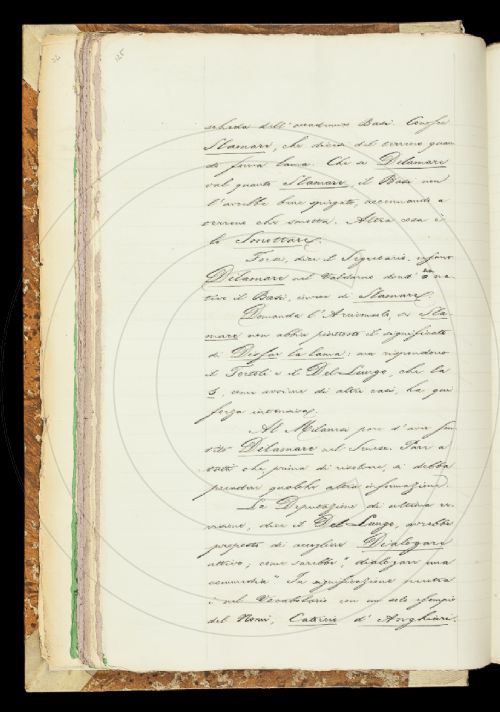 scheda dell'accademico Basi. Confer
Slamare, che dicesi del terreno quan
do forma lama. Che a Delamare
val quanto Slamare, il Basi non
l'avrebbe bene spiegato, accennando a
terreno che smotta. Altra cosa è
lo Smottare.
Forse, dice il Segretario, usano
Dilamare nel Valdarno dond' è na-
tivo il Basi, invece di Slamare.
Domanda l'Arciconsolo, se Sla-
mare non abbia piuttosto il significato
di Disfar la lama: ma rispondono
il Tortoli e il Del-Lungo, che la
S, come avviene di altri casi, ha qui
forza intensiva.
Al Milanesi pare d'aver sen
tito Dilamare nel Senese. Pare a
tutti che, prima di risolvere, si debba
prendere qualche altra informazione.
La Deputazione di ultima re-
visione, dice il Del-Lungo, avrebbe
proposto di accogliere Dialogare
attivo; come sarebbe, "dialogare una
commedia" In significazione neutra
è nel Vocabolario con un solo esempio
del Nomi, Catorcio d'Anghiari.